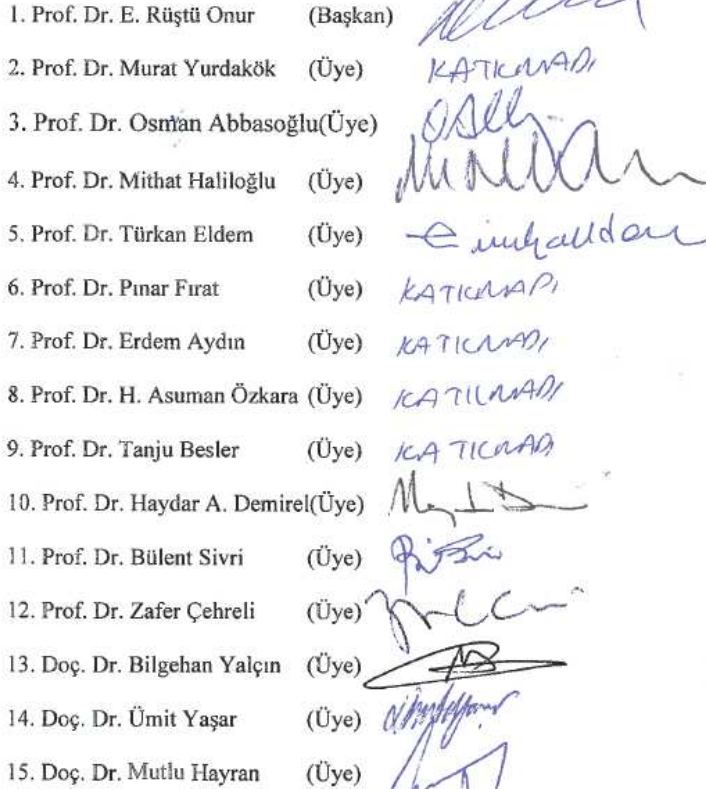 1. Prof. Dr. E. Rüştü Onur (Başkan)
2. Prof. Dr. Murat Yurdakök (Üye) KATILMADI
3. Prof. Dr. Osman Abbasoğlu(Üye)
4. Prof. Dr. Mithat Haliloğlu (Üye)
5. Prof. Dr. Türkan Eldem (Üye)
6. Prof. Dr. Pınar Fırat (Üye) KATILMADI
7. Prof. Dr. Erdem Aydın (Üye) KATILMADI
8. Prof. Dr. H. Asuman Özkara (Üye) KATILMADI
9. Prof. Dr. Tanju Besler (Üye) KATILMADI
10. Prof. Dr. Haydar A. Demirel(Üye)
11. Prof. Dr. Bülent Sivri (Üye)
12. Prof. Dr. Zafer Çehreli (Üye)
13. Doç. Dr. Bilgehan Yalçın (Üye)
14. Doç. Dr. Ümit Yaşar (Üye)
15. Doç. Dr. Mutlu Hayran (Üye)